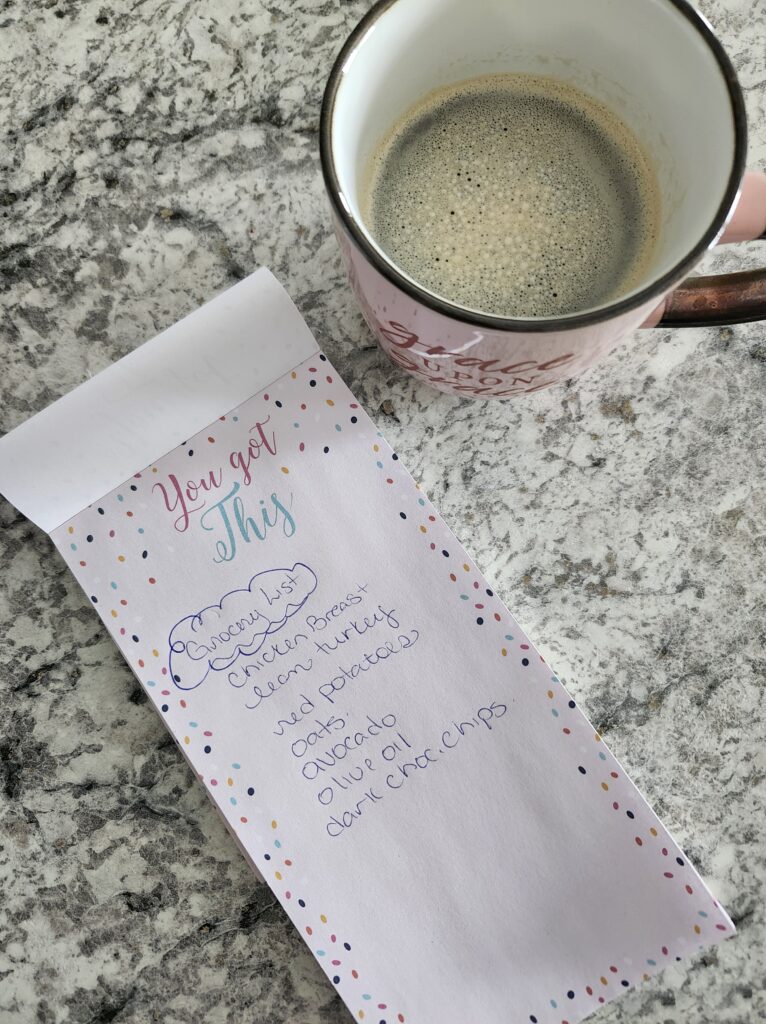 grace
UPON
grace
You got
This
Grocery List
Chicken Breast
lean turkey
red potatoes
oats
avocado
olive oil
dark choc. chips